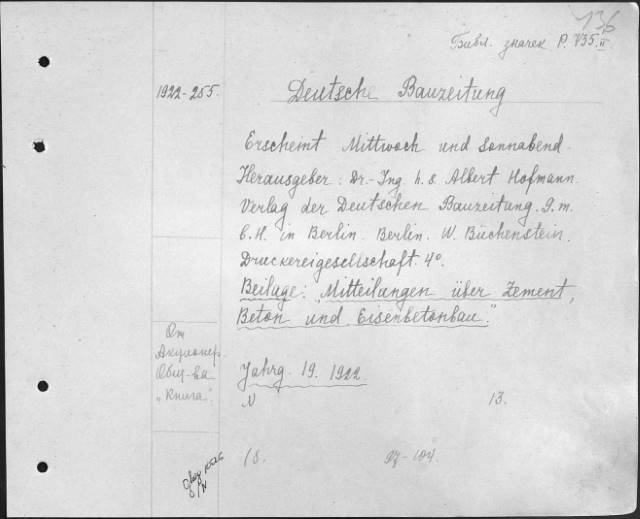 136
Библ. значек P. V35.II
1922-255.
Deutsche Bauzeitung
Erscheint Mittwoch und Sonnabend.
Herausgeber: Dr.-Ing. h. s. Albert Hofmann.
Verlag der Deutschen Bauzeitung. G.m.
b.H. in Berlin. Berlin. W. Büchenstein.
Druckereigesellschaft. 4°.
Beilage: "Mitteilungen über Zement,
Beton und Eisenbetonbau."
От
Акционер.
Общ-ва
"Книга".
Jahrg. 19. 1922.
N 13.
18. 97-104.